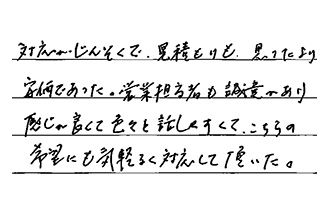 対応がじんそくで、見積もりも、思ったより
安価であった。営業担当者も誠意があり
感じが良くて色々と話しやすくて、こちらの
希望にも気軽るく対応して頂いた。